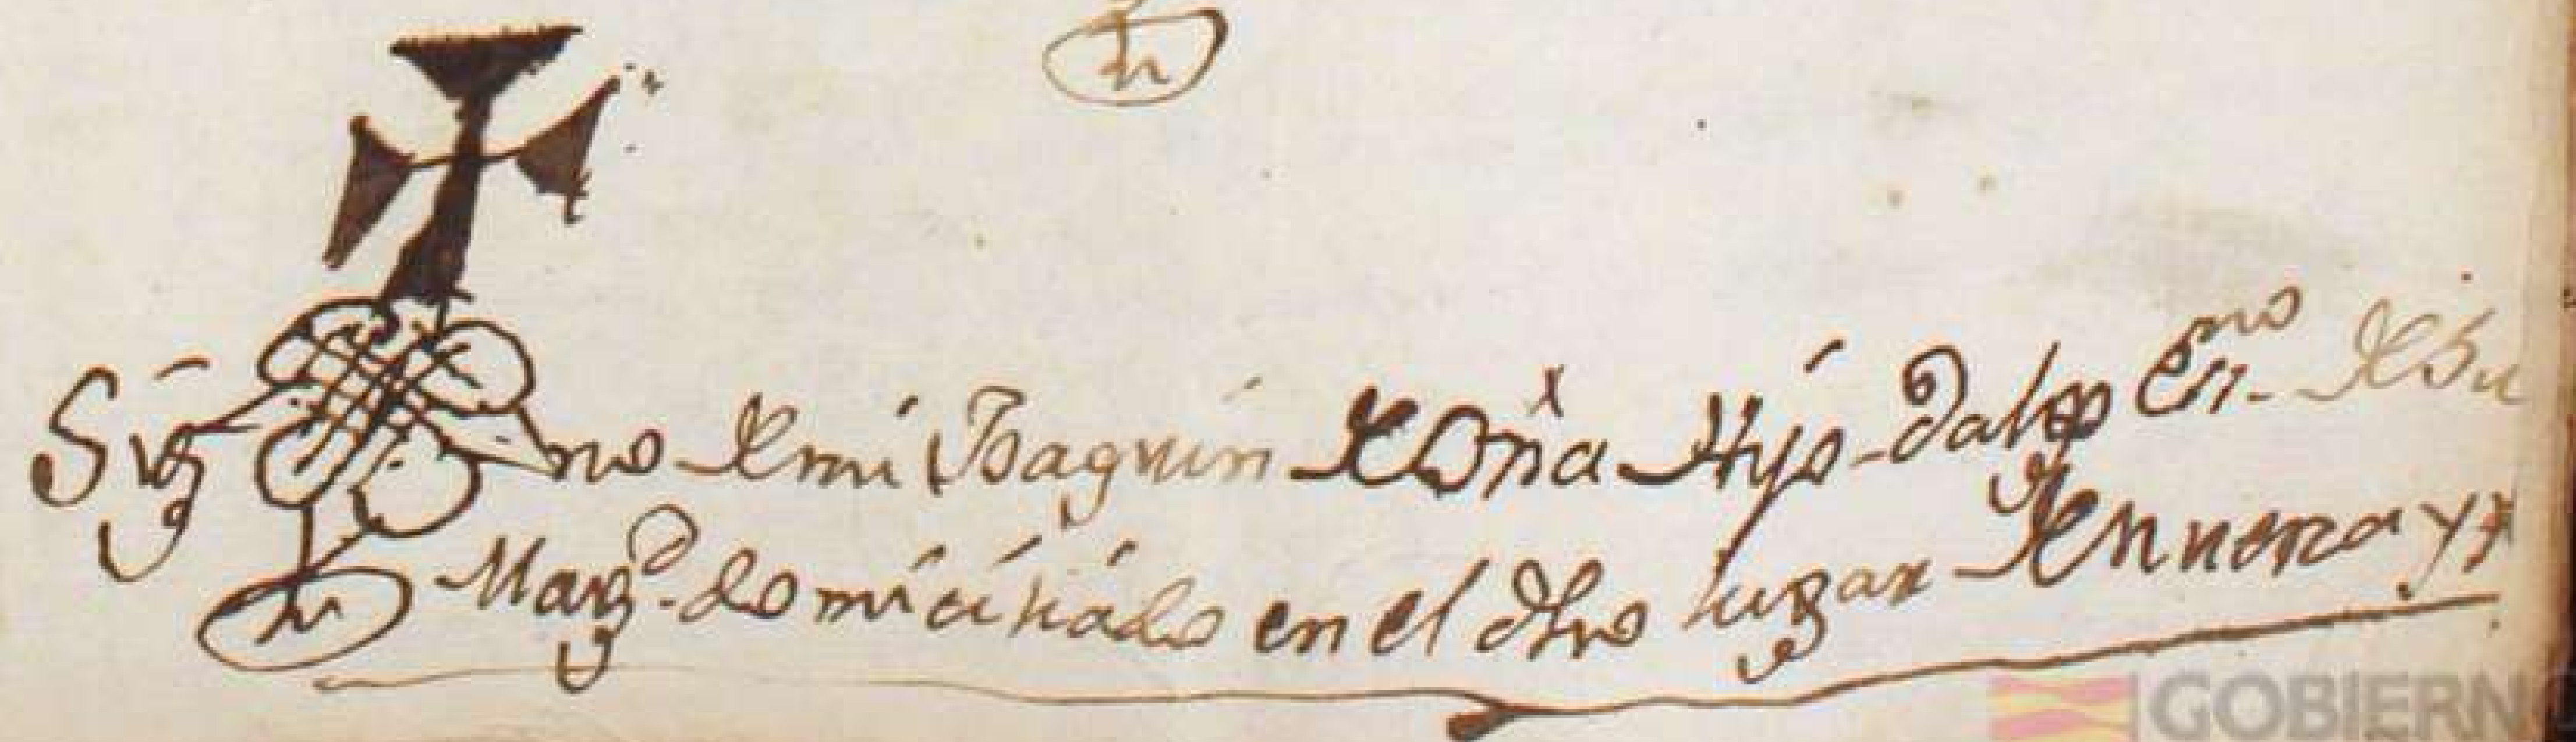 Sig no de mi Joaquin de Oña Hijo-dalgo Essno de su
Magd. domiciliado en el dho lugar de
GOBIERN